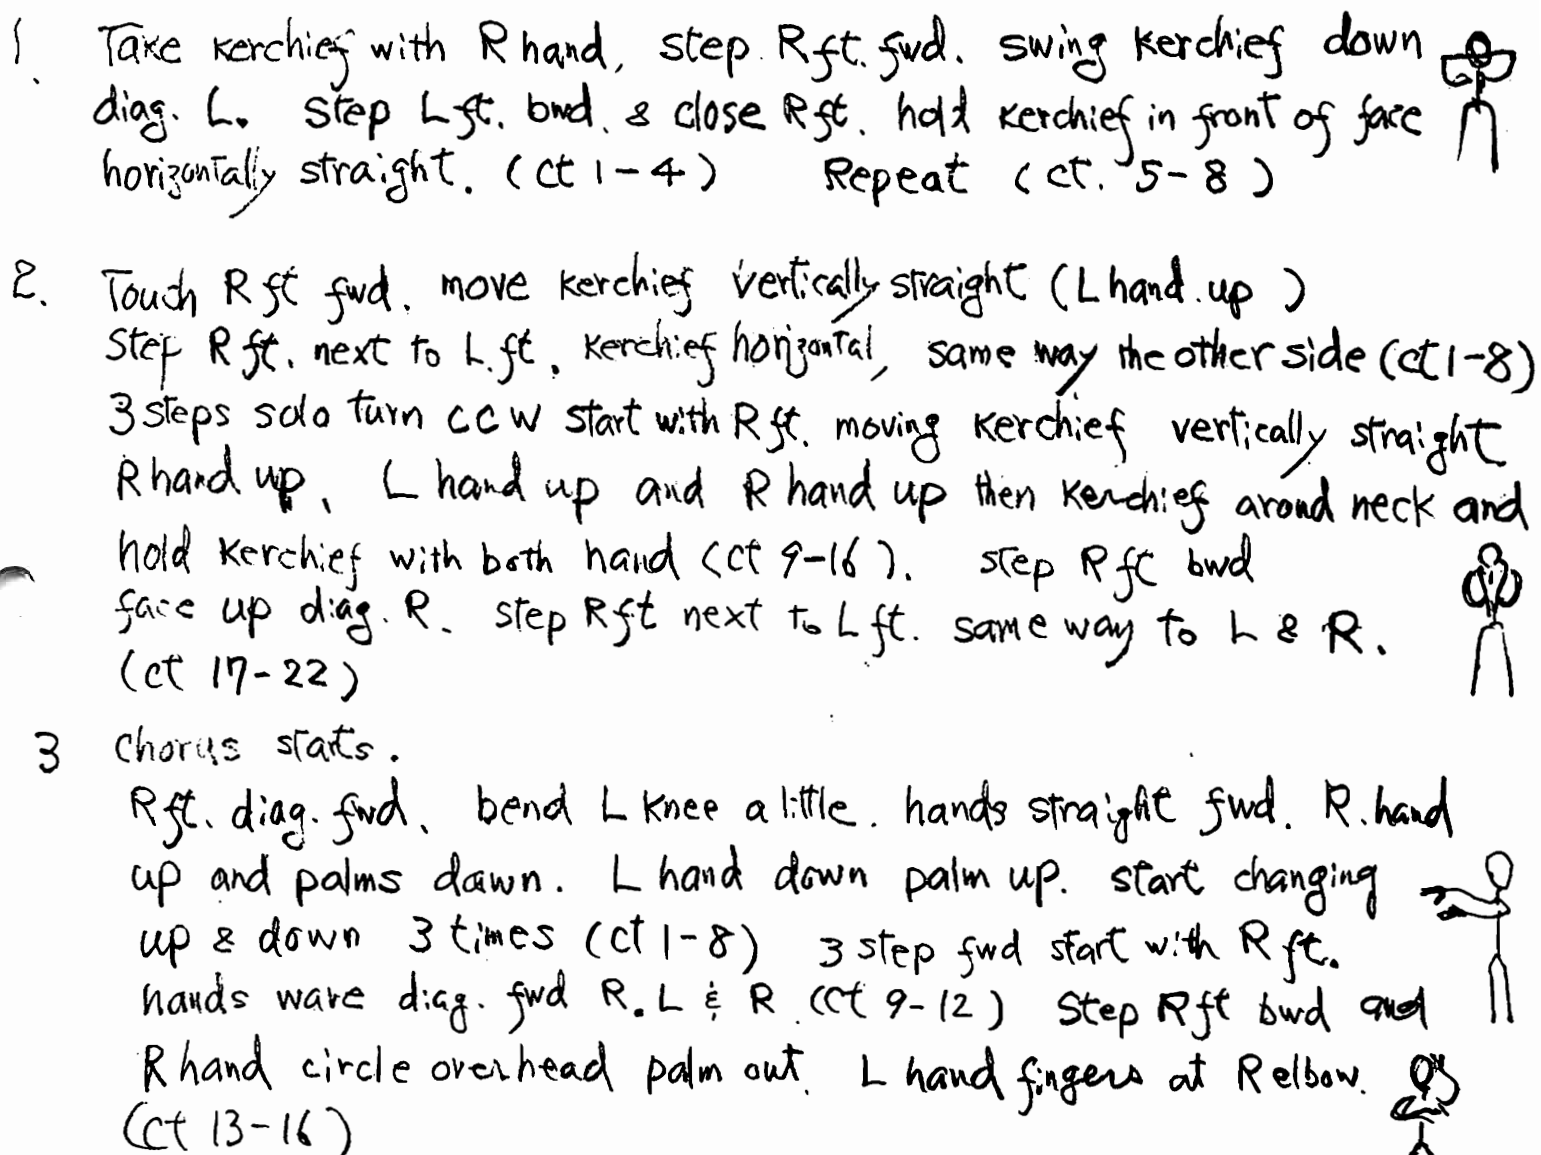 1. Take kerchief with R hand, step Rft. fwd. swing kerchief down
diag. L. step Lft. bwd. & close Rft. hold kerchief in front of face
horizontally straight. (ct 1-4) Repeat (ct. 5-8)
2. Touch R ft fwd. move kerchief vertically straight (L hand up)
Step R ft. next to L.ft. kerchief horizontal, same way the other side (ct 1-8)
3 steps solo turn CCW start with R ft. moving kerchief vertically straight
R hand up, L hand up and R hand up then kerchief aroud neck and
hold kerchief with both hand (ct 9-16). step R ft bwd
face up diag. R. step Rft next to L ft. same way to L & R.
(ct 17-22)
3 Chorus starts.
Rft. diag. fwd. bend L knee a little. hands straight fwd. R. hand
up and palms dawn. L hand down palm up. start changing
up & down 3 times (ct 1-8) 3 step fwd start with R ft.
hands wave diag. fwd R. L & R (ct 9-12) Step Rft bwd and
R hand circle overhead palm out. L hand fingers at R elbow.
(ct 13-16)